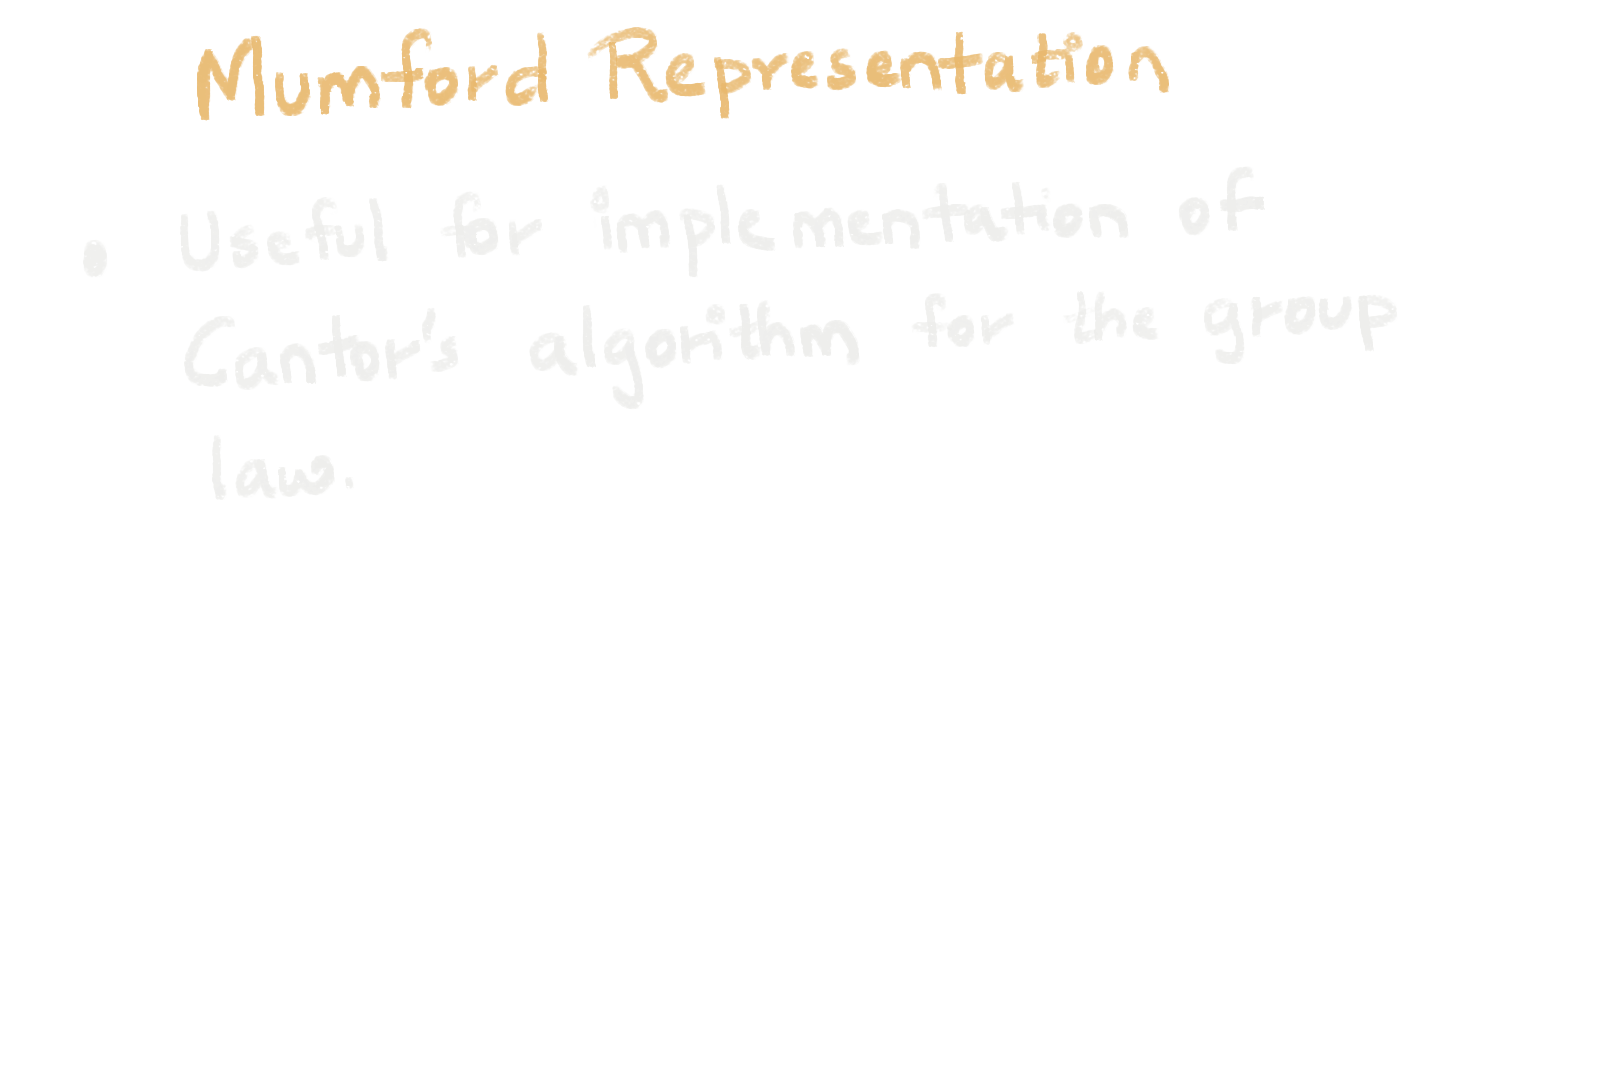 Mumford Representation
• Useful for implementation of
Cantor's algorithm for the group
law.